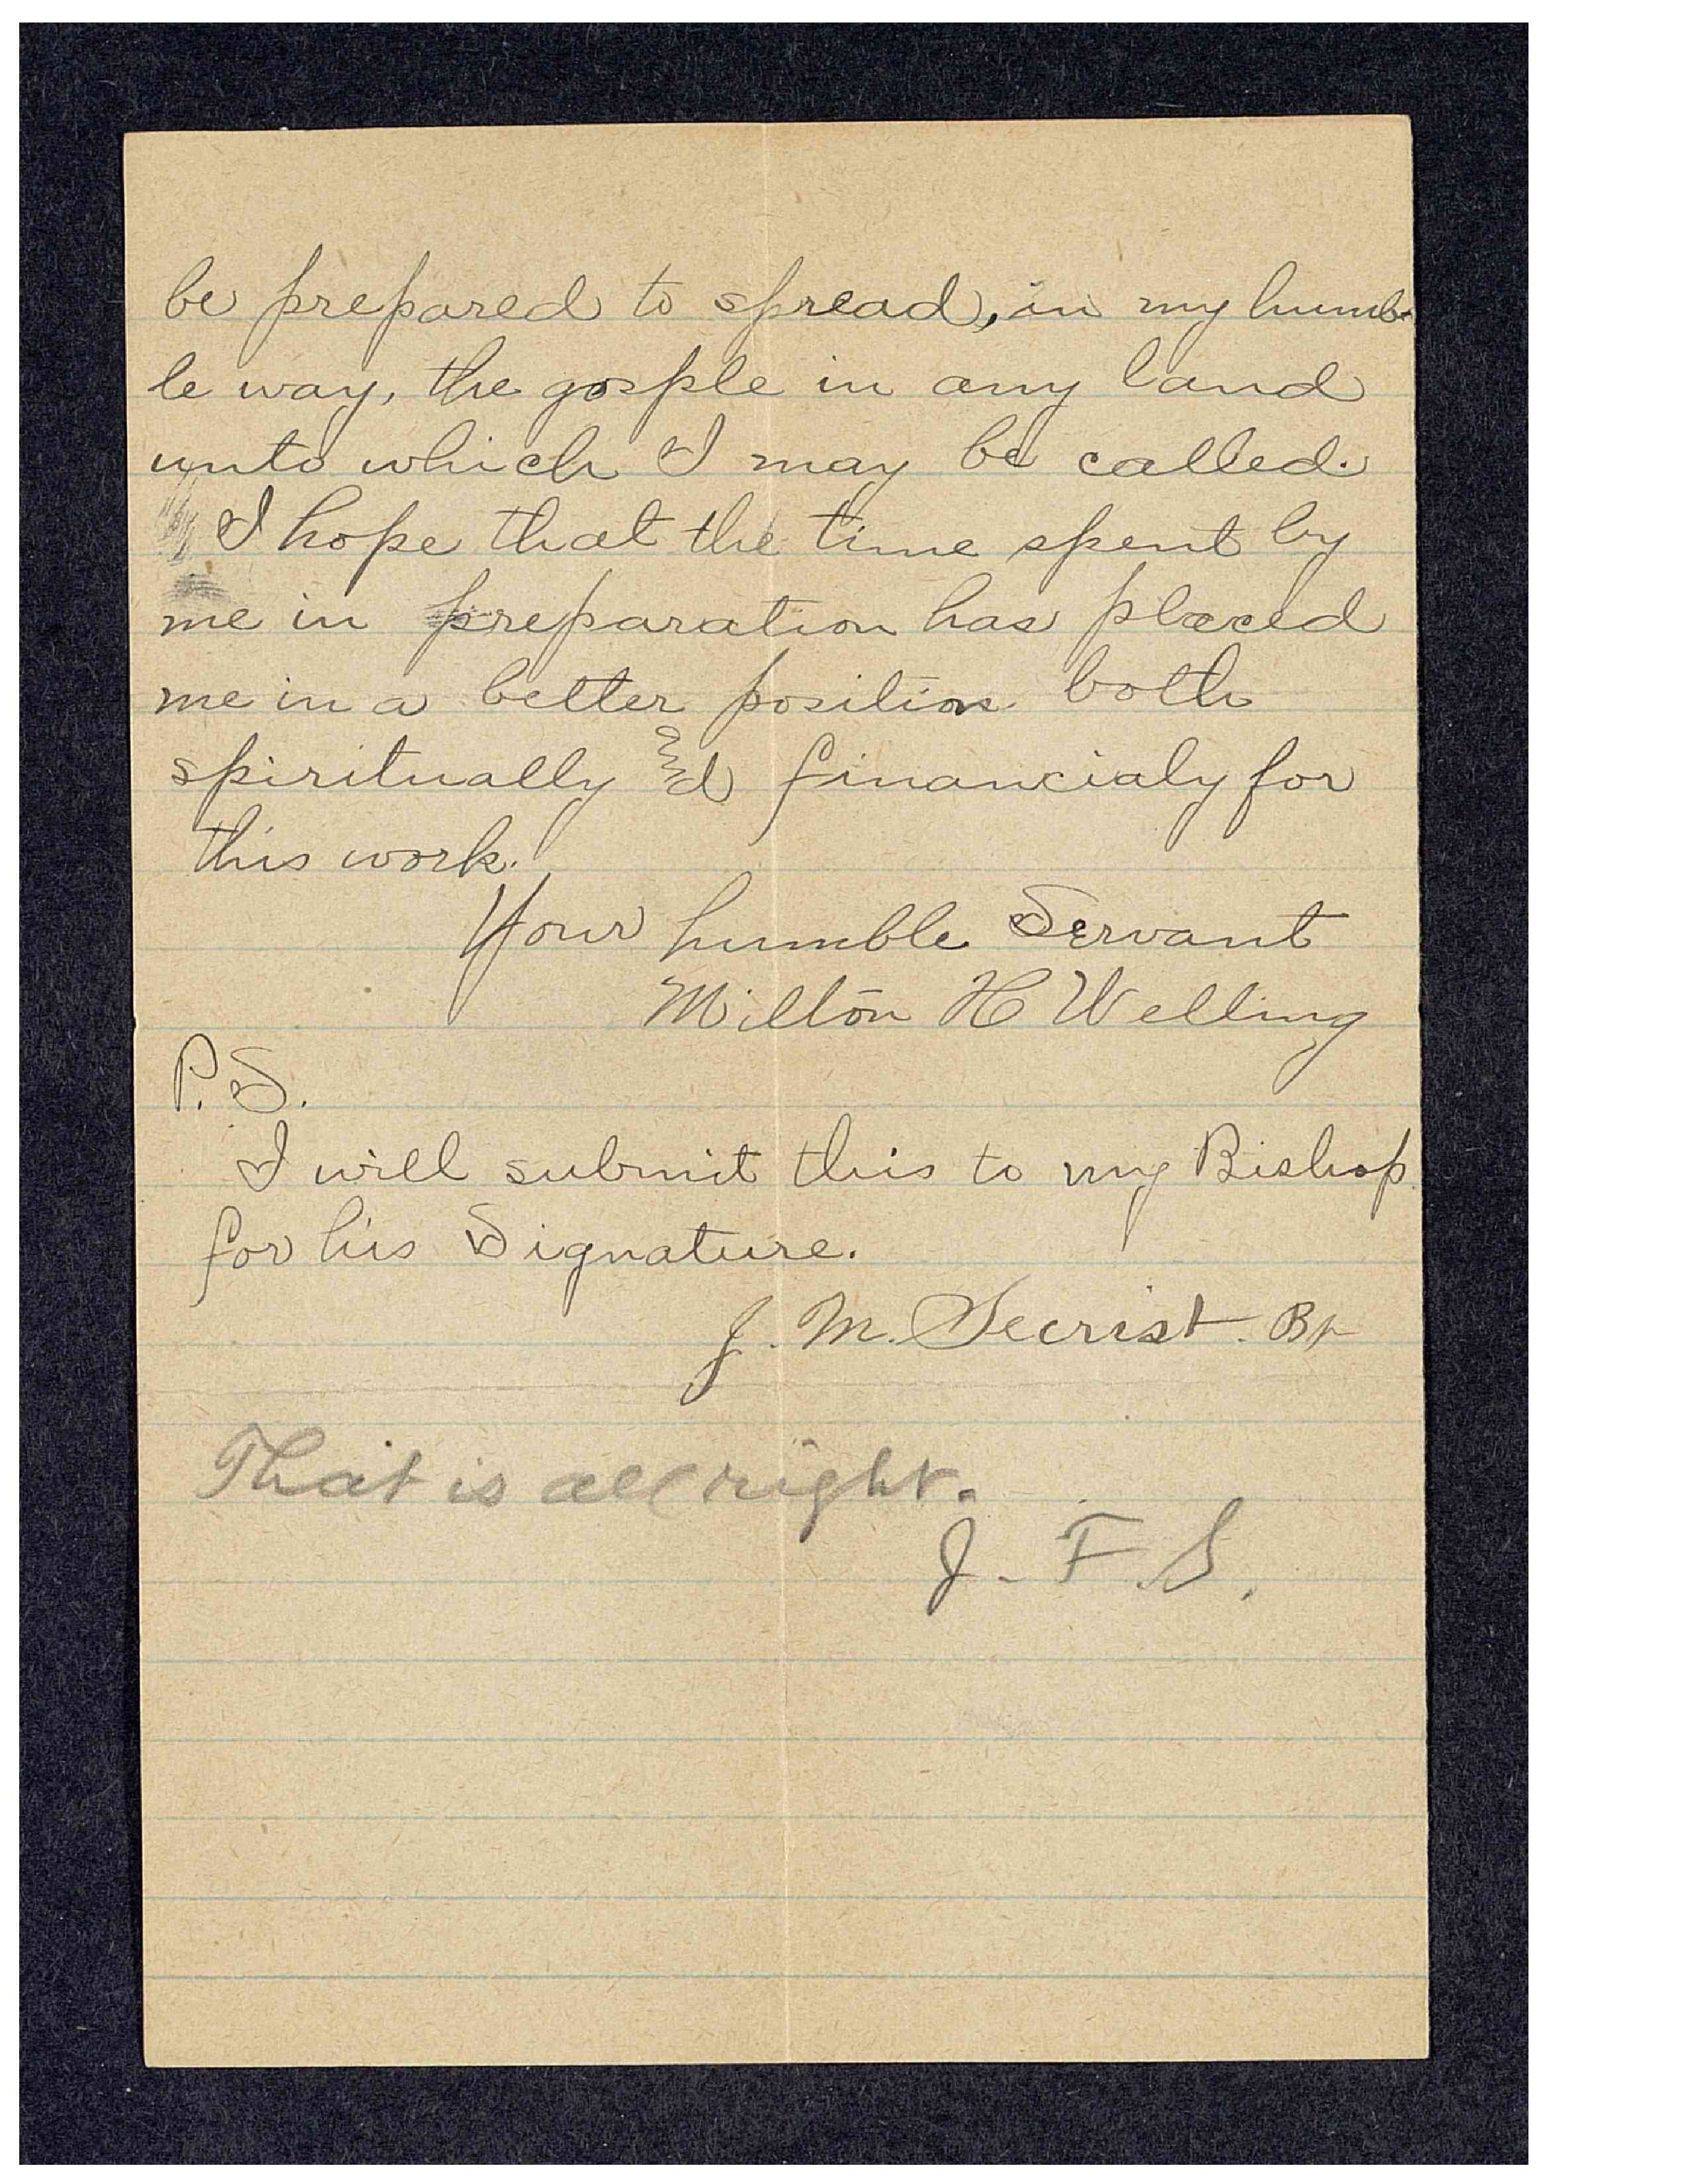 be prepared to spread, in my humb-
le way, the gosple in any land
unto which I may be called.
I hope that the time spent by
me in preparation has placed
me in a better position both
spiritually and financialy for
this work.
Your humble Servant
Milton H Welling
P.S.
I will submit this to my Bishop
for his Signature.
J. M. Secrist. Bp
That is all right.
J. F. S.